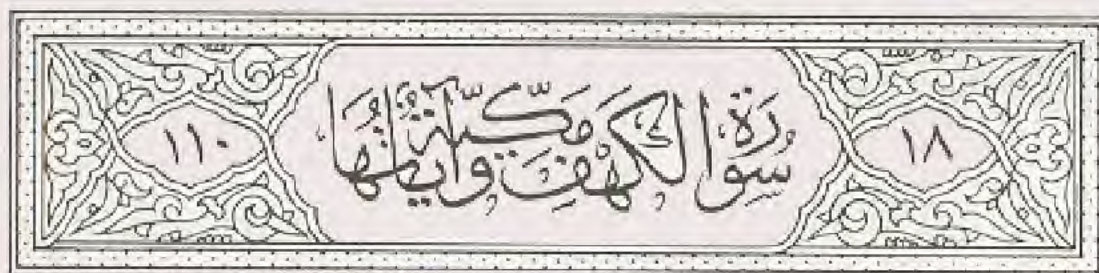 ١٨
سُورَةُ الْكَهْفِ مَكِّيَّةٌ وَآيَاتُهَا
١١٠